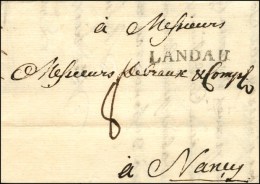 à Messieurs
LANDAU
Messieurs Devaux & Compe
8
à Nancy